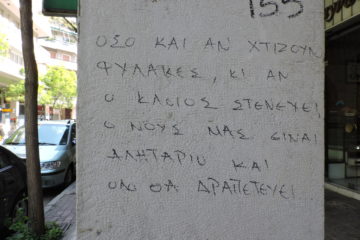 155
ΟΣΟ ΚΑΙ ΑΝ ΧΤΙΖΟΥΝ
ΦΥΛΑΚΕΣ, ΚΙ ΑΝ
Ο ΚΛΟΙΟΣ ΣΤΕΝΕΥΕΙ
Ο ΝΟΥΣ ΜΑΣ ΕΙΝΑΙ
ΑΛΗΤΑΡΙΟ ΚΑΙ
ΘΑ ΔΡΑΠΕΤΕΥΕΙ